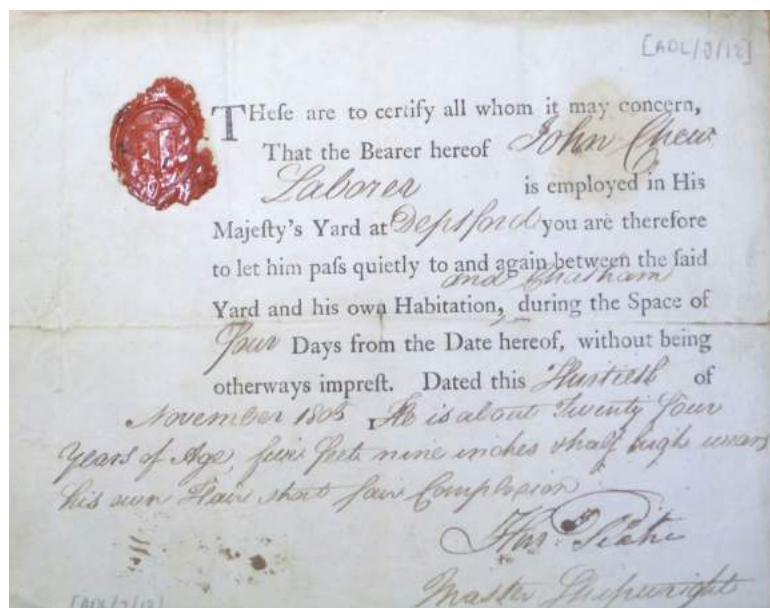 [ADL/J/12]
THeſe are to certify all whom it may concern,
That the Bearer hereof John Chew
Laborer is employed in His
Majeſty's Yard at Deptford you are therefore
to let him paſs quietly to and again between the ſaid
and Chatham
Yard and his own Habitation, during the Space of
Four Days from the Date hereof, without being
otherways impreſt. Dated this Thirtieth of
November 1803 He is about Twenty four
Years of Age, five feet nine inches & half high wears
his own Hair short fair Complexion
Master Shipwright
[ADL/J/12]